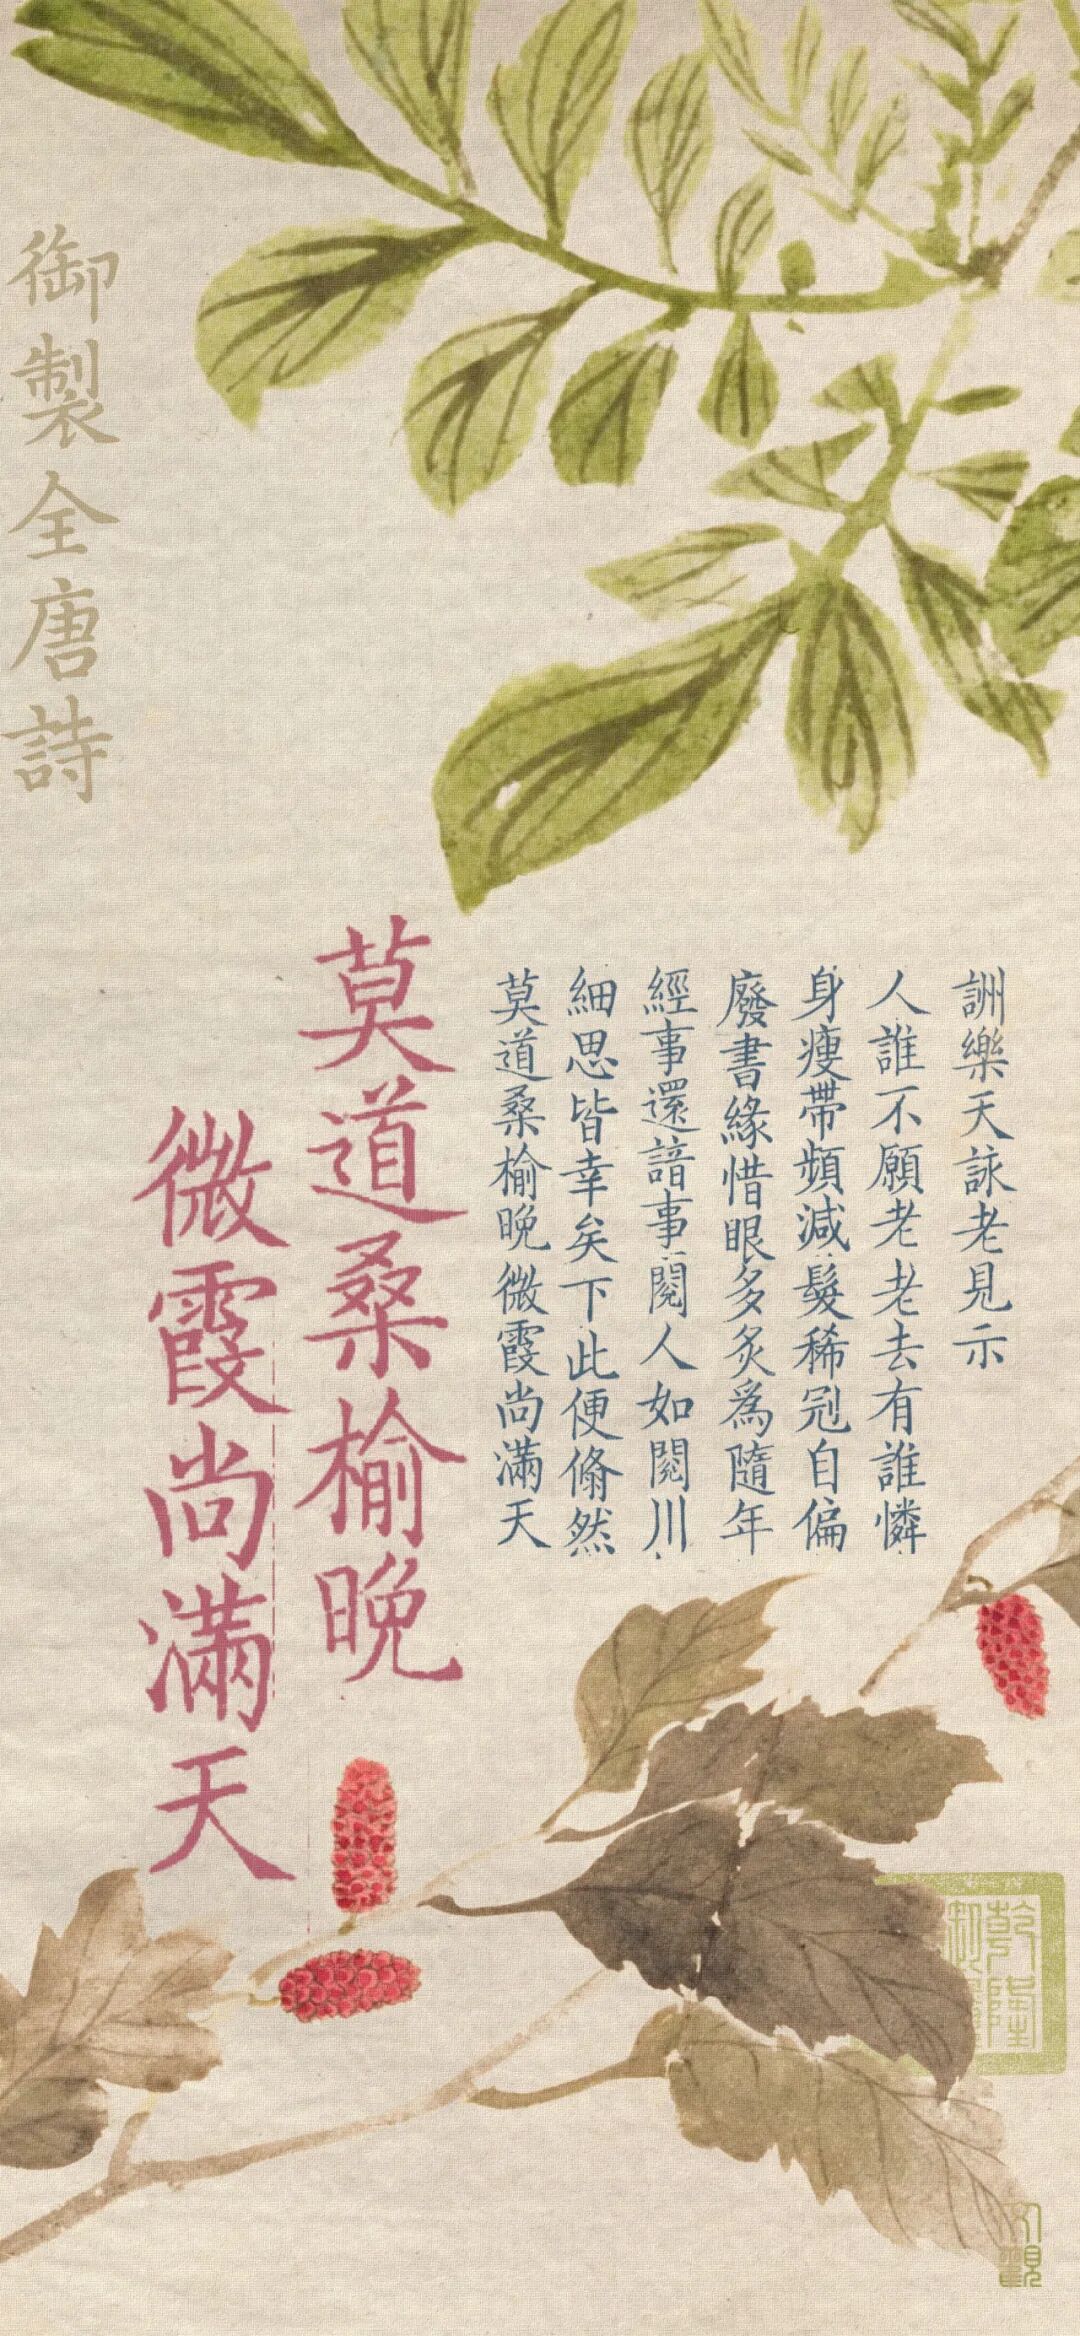 御製全唐詩
詶樂天詠老見示
人誰不願老老去有誰憐
身瘦帶頻減髮稀冠自偏
廢書緣惜眼多炙為隨年
經事還諳事閱人如閱川
細思皆幸矣下此便翛然
莫道桑榆晚微霞尚滿天
莫道桑榆晚
微霞尚滿天
乾隆